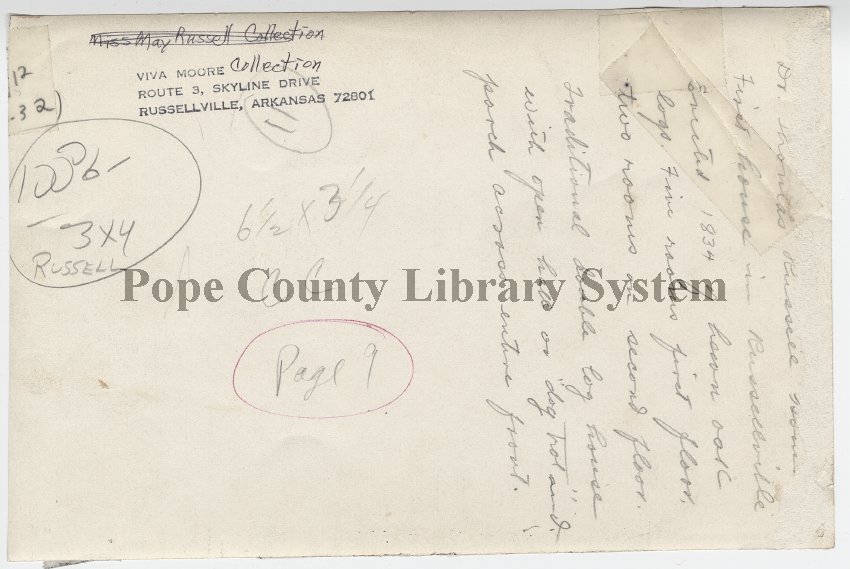 Miss May Russell Collection
VIVA MOORE Collection
ROUTE 3, SKYLINE DRIVE
RUSSELLVILLE, ARKANSAS 72801
12
-32)
11
100%-
3x4
RUSSELL
6 1/2 x 3 1/4
Page 9
Pope County Library System
Dr. Thomas Russell home
First house in Russellville
Erected 1834 of hewn oak
logs. Five rooms first floor,
two rooms on second floor.
Traditional double log house
with open hall or "dog trot" and
porch across entire front.